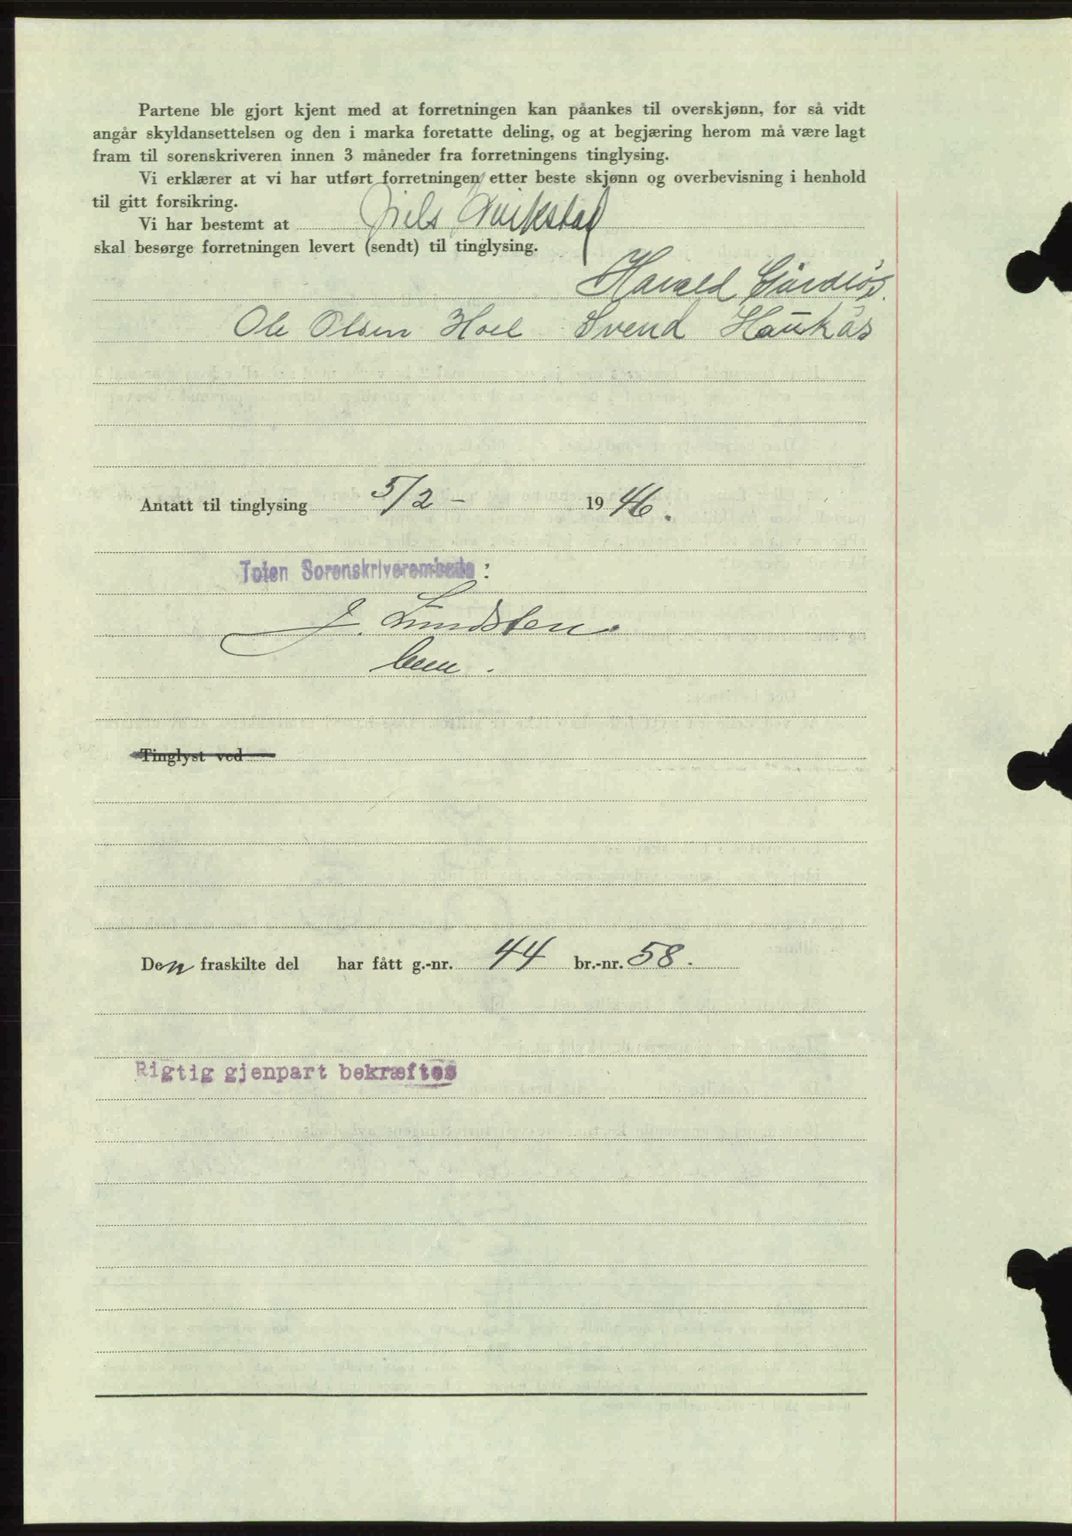 Partene ble gjort kjent med at forretningen kan påankes til overskjønn, for så vidt
angår skyldansettelsen og den i marka foretatte deling, og at begjæring herom må være lagt
fram til sorenskriveren innen 3 måneder fra forretningens tinglysing.
Vi erklærer at vi har utført forretningen etter beste skjønn og overbevisning i henhold
til gitt forsikring.
Vi har bestemt at Niels Kvikstad
skal besørge forretningen levert (sendt) til tinglysing.
Harald Gårdløs.
Ole Olsen Hoel Svend Haukås
Antatt til tinglysing 5/2 - 1946.
Toten Sorenskriverembede:
J. Lundsten
Tinglyst ved
Den fraskilte del har fått g.-nr. 44 br.-nr. 58.
Rigtig gjenpart bekræftes